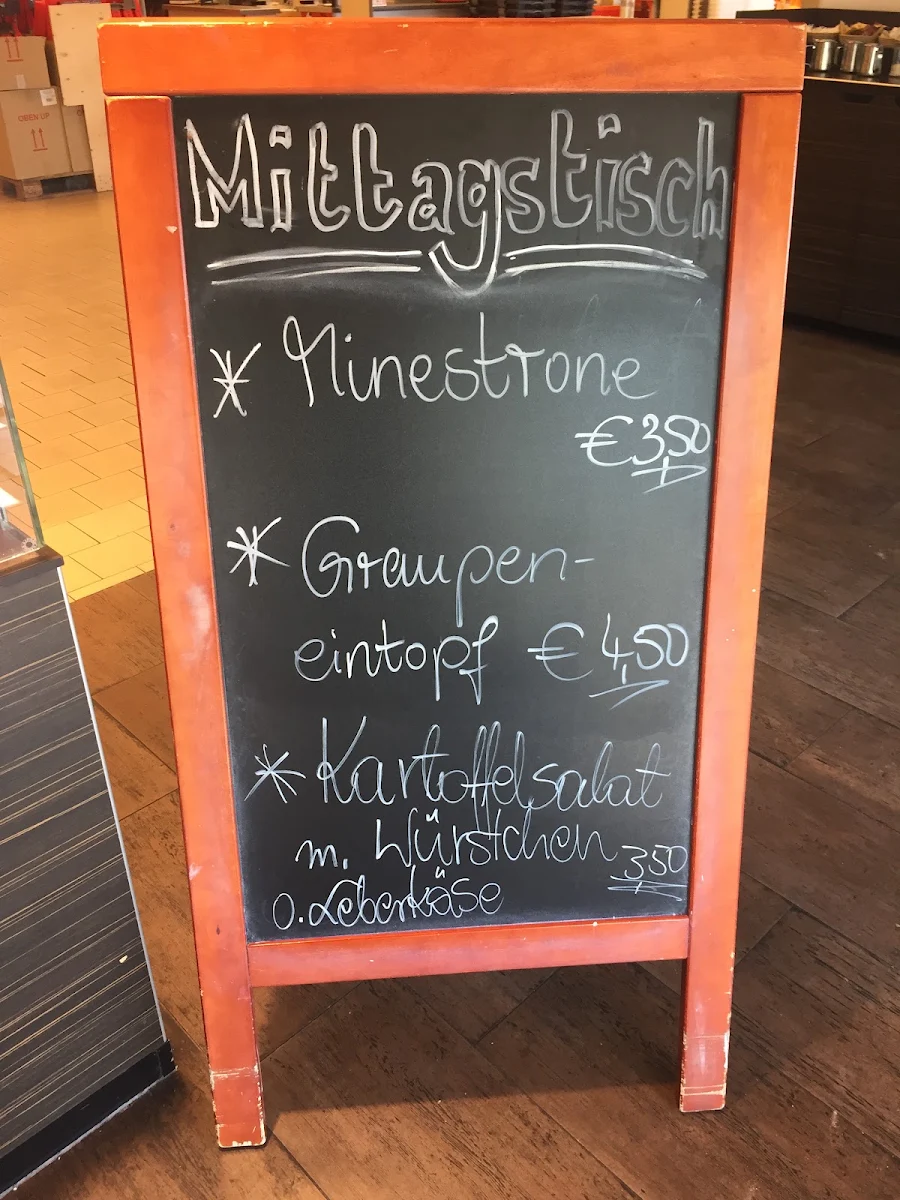 Mittagstisch
* Minestrone
€3,50
* Graupen-
eintopf €4,50
* Kartoffelsalat
m. Würstchen 350
o. Leberkäse
OBEN UP